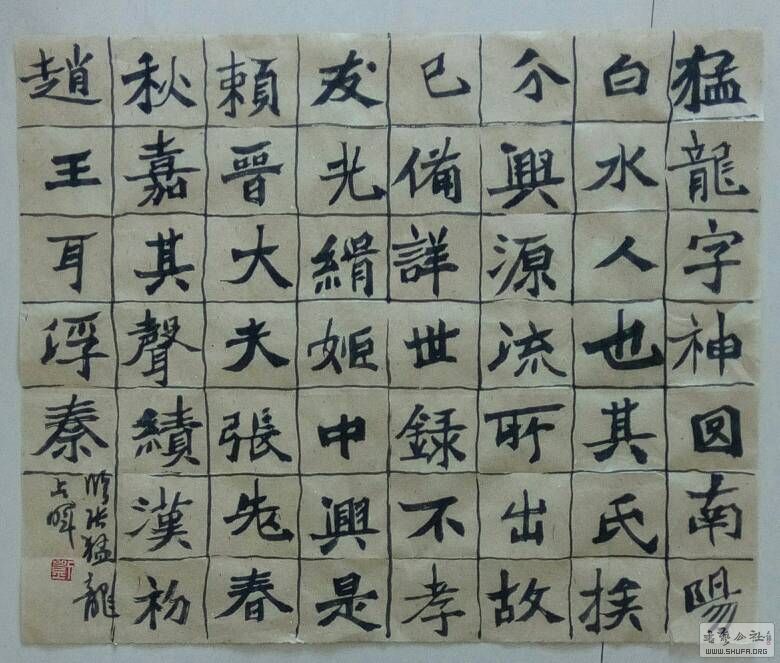 猛龍字神回南陽
白水人也其氏族
分興源流所出故
已備詳世録不孝
友光緝姬中興是
賴晉大夫張老春
秋嘉其聲績漢初
趙王耳浮秦
臨張猛龍
WWW.SHUFA.ORG